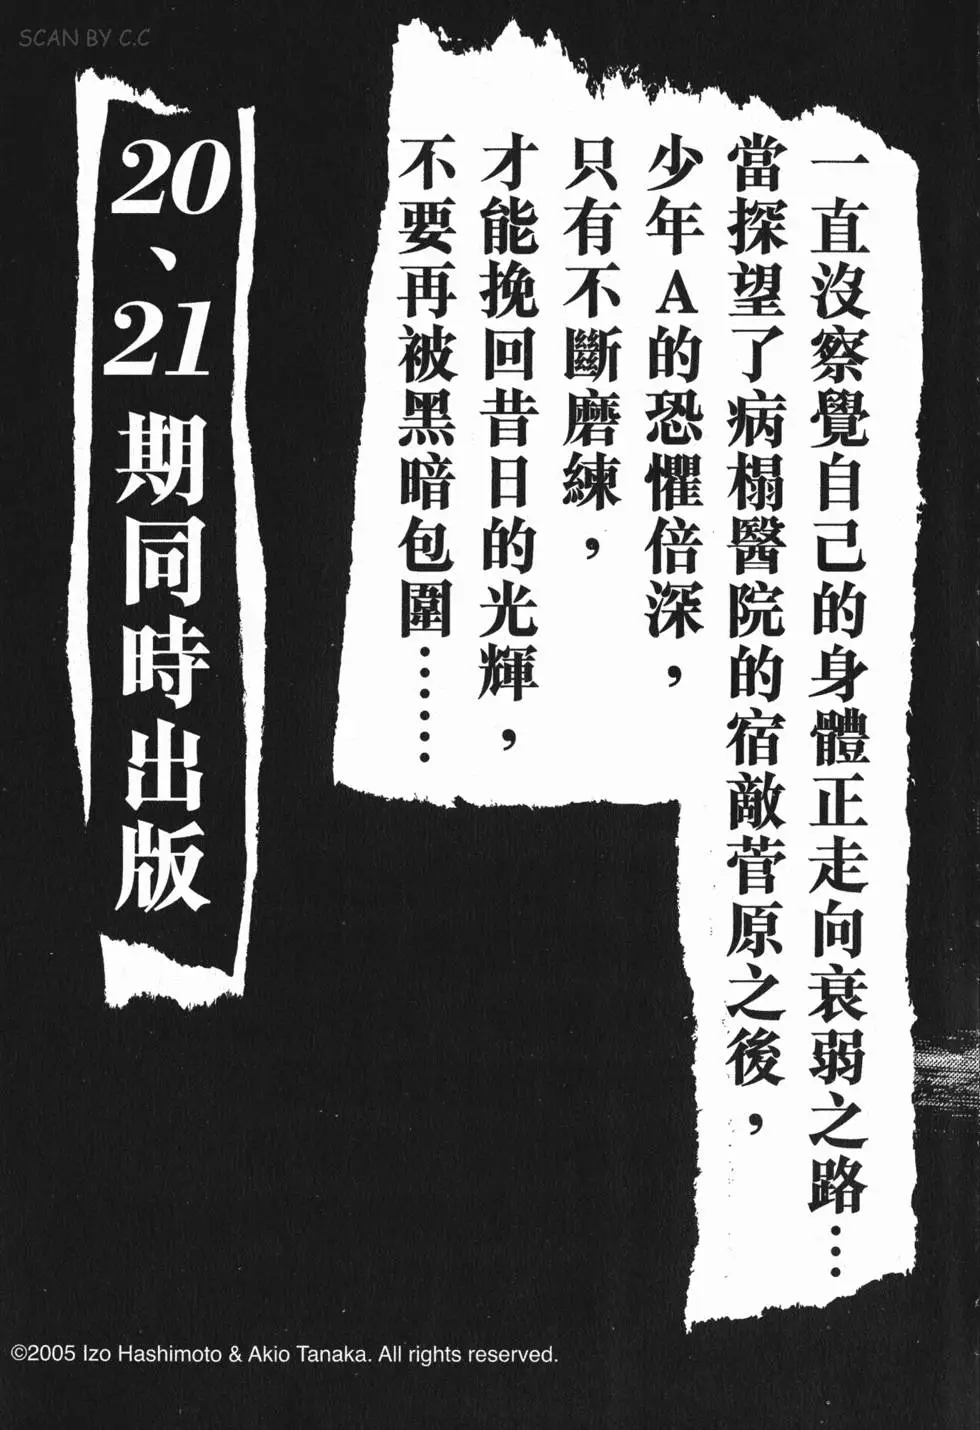 SCAN BY C.C
一直沒察覺自己的身體正走向衰弱之路…
當探望了病榻醫院的宿敵菅原之後，
少年A的恐懼倍深，
只有不斷磨練，
才能挽回昔日的光輝，
不要再被黑暗包圍……
20、21期同時出版
©2005 Izo Hashimoto & Akio Tanaka. All rights reserved.